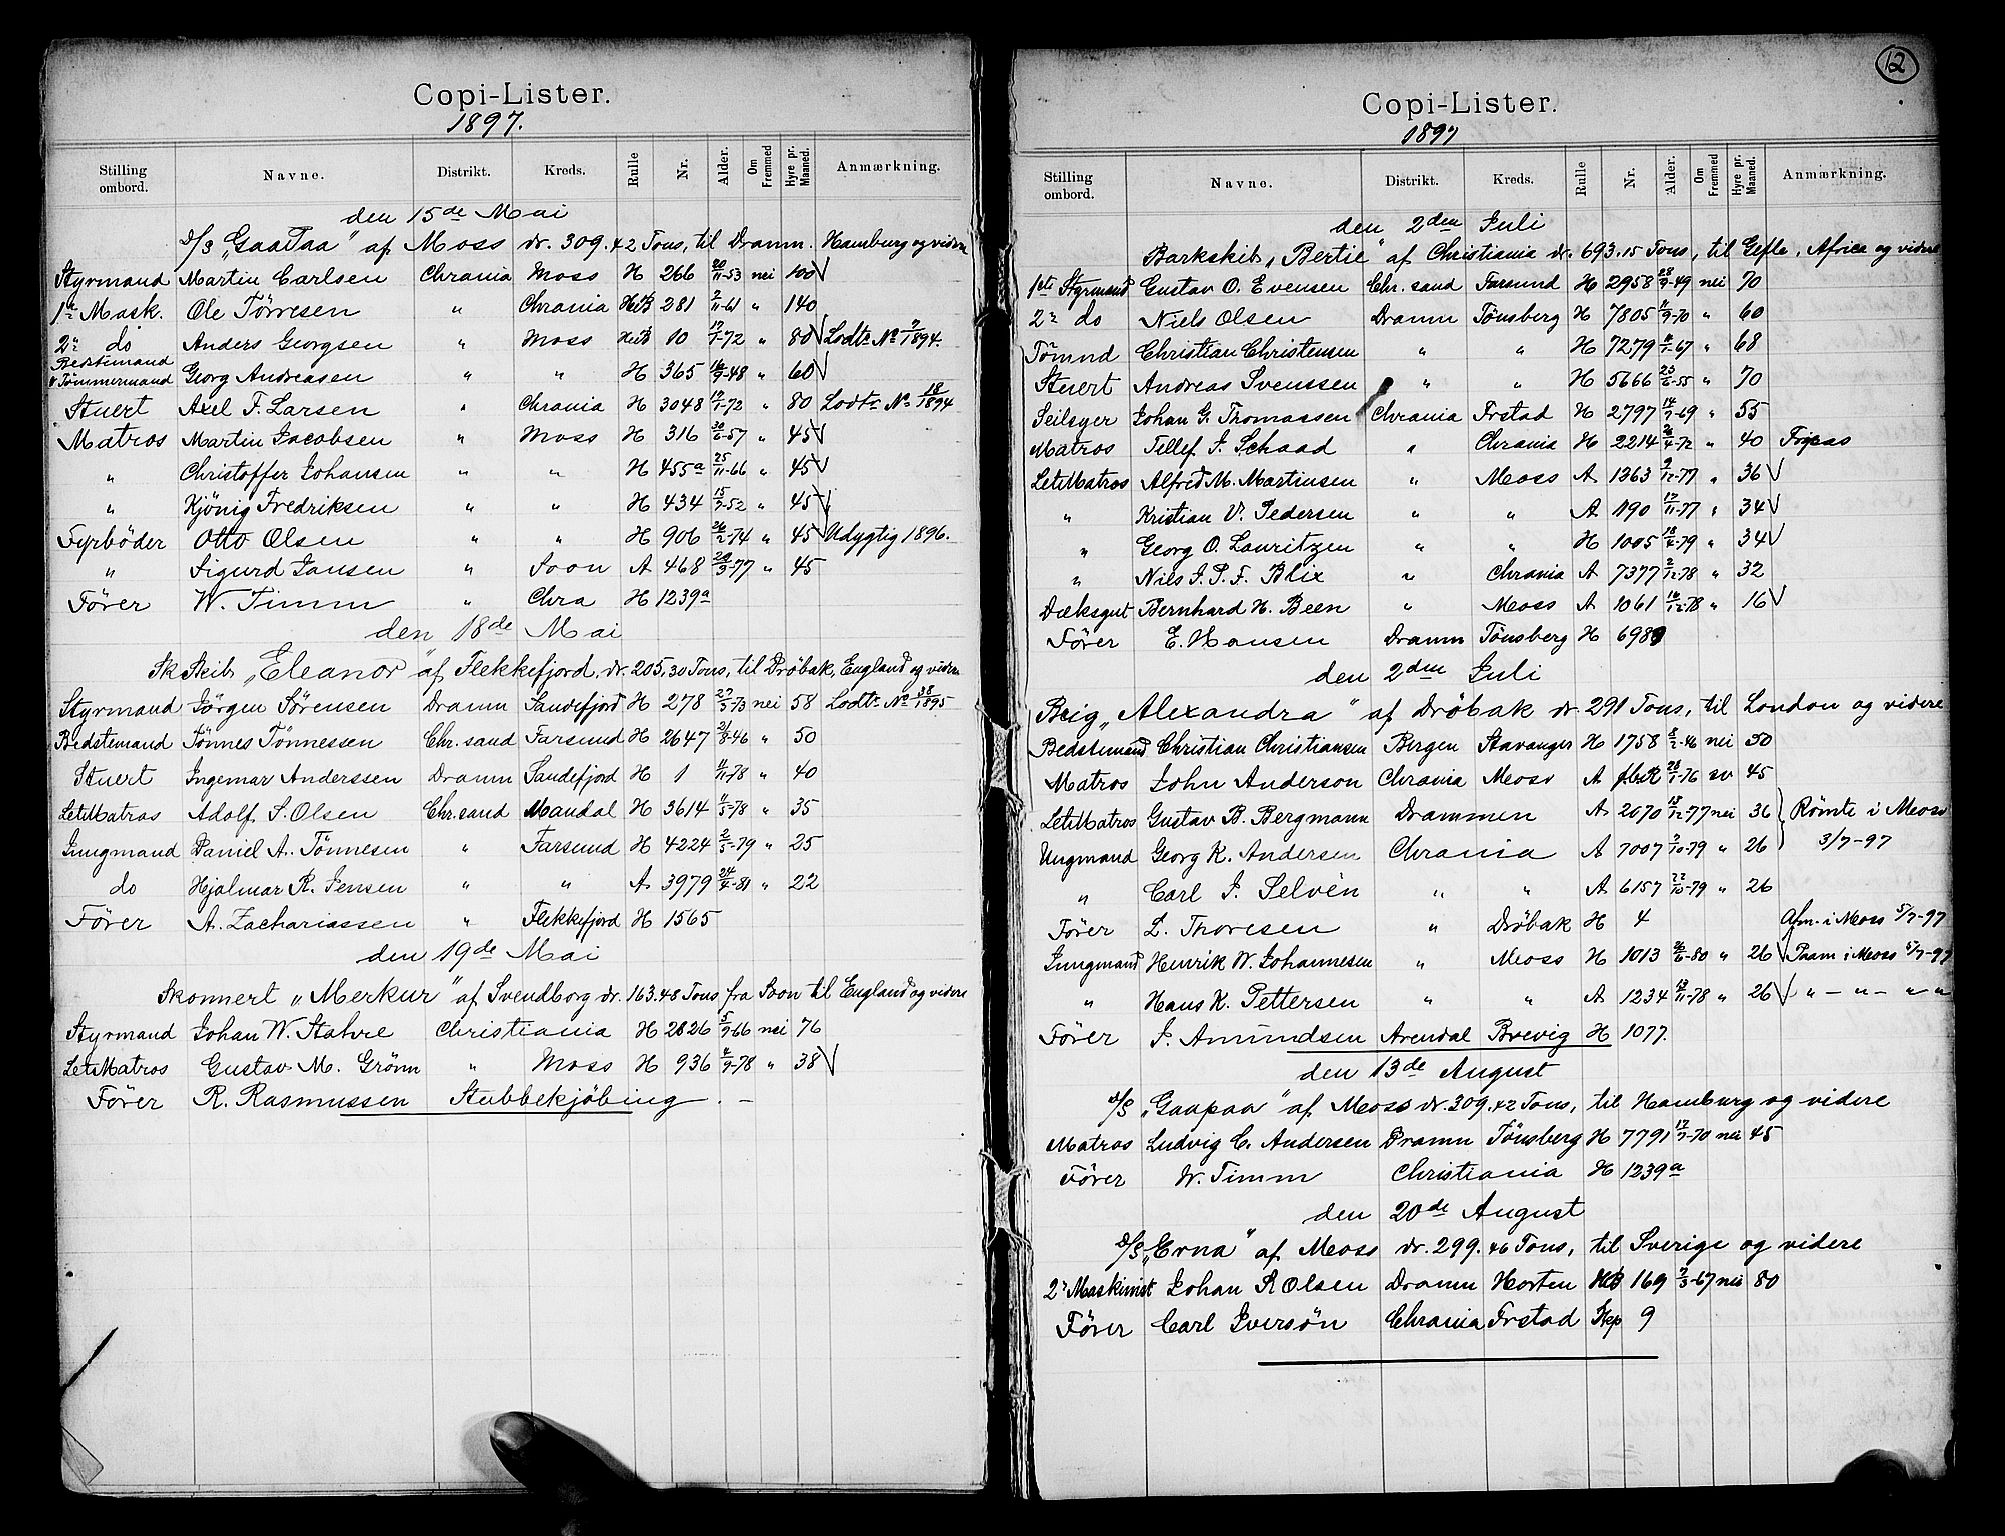 Copi-Lister.
1897.
Stilling ombord. Navne. Distrikt. Kreds. Rulle Nr. Alder. Om Fremmed Hyre pr. Maaned. Anmærkning.
den 15de Mai
d/s „Gaapaa" af Moss dr. 309.42 Tons, til Dramn. Hamburg og videre
Styrmand Martin Carlsen Chrania Moss H 266 20/11-53 nei 100 √
1ste Mask. Ole Törresen " Chrania HB 281 2/11-61 " 140
2n do Anders Georgsen " Moss HB 10 17/7-72 " 80 √ Lodts. No 7/1894.
Bedstemand & Tömmermand Georg Andreasen " " H 365 16/9-48 " 60 √
Stuert Axel F. Larsen " Chrania H 3048 17/1-72 " 80 Lodts. No 18/1894
Matros Martin Jacobsen " Moss H 316 30/6-57 " 45 √
" Christoffer Johansen " " H 455a 25/11-66 " 45 √
" Kjönig Fredriksen " " H 434 15/9-52 " 45 √
Fyrböder Otto Olsen " " H 906 26/2-74 " 45 √ Udygtig 1896.
" Sigurd Jansen " Soon A 468 20/3-77 " 45
Förer W. Timm " Chra H 1239a
den 18de Mai
Sk Skib „Eleanor" af Flekkefjord, dr. 205,30 Tons, til Dröbak, England og videre
Styrmand Jörgen Sörensen Dramn Sandefjord H 278 27/5-73 nei 58 Lodts. No 38/1895
Bedstemand Tönnes Tönnessen Chr.sand Farsund H 2647 21/8-46 " 50
Stuert Ingemar Anderssen Dramn Sandefjord H 1 11/11-78 " 40
LetMatros Adolf S. Olsen Chr.sand Mandal H 3614 11/5-78 " 35
Jungmand Daniel A. Tönnesen " Farsund H 4224 2/5-79 " 25
do Hjalmar R. Jensen " " A 3979 24/4-81 " 22
Förer A. Zachariassen " Flekkefjord H 1565
den 19de Mai
Skonnert „Merkur" af Svendborg dr. 163.48 Tons fra Soon til England og videre
Styrmand Johan W. Stahre Christiania H 2626 5/9-66 nei 76
LetMatros Gustav M. Grönn " Moss H 936 4/9-78 " 38 √
Förer R. Rasmussen Stubbekjöbing. -
12
Copi-Lister.
1897
Stilling ombord. Navne. Distrikt. Kreds. Rulle Nr. Alder. Om Fremmed Hyre pr. Maaned. Anmærkning.
den 2den Juli
Barkskib „Bertie" af Christiania dr. 693.15 Tons, til Gefle, Africa og videre
1ste Styrmand Gustav O. Evensen Chr.sand Farsund H 2958 28/9-49 nei 70
2n do Niels Olsen Dramn Tönsberg H 7805 11/9-70 " 60
Tömnd Christian Christensen " " H 7279 11/1-67 " 68
Stuert Andreas Svenssen " " H 5666 25/6-55 " 70
Seilsyer Johan G. Thomassen Chrania Frstad H 2797 14/7-69 " 55
Matros Tellef J. Schaad " Chrania H 2214 26/4-72 " 40
LetMatros Alfred M. Martinsen " Moss A 1363 9/12-77 " 36 √
" Kristian V. Pedersen " " A 1190 17/11-77 " 34 √
" Georg O. Lauritzen " " H 1005 18/4-79 " 34 √
" Niels J. P. F. Blix " Chrania A 7377 2/12-78 " 32
Dæksgut Bernhard H. Been " Moss A 1061 16/12-78 " 16 √
Förer E. Hansen Dramn Tönsberg H 6989
den 2den Juli
Brig „Alexandra" af Dröbak dr. 291 Tons, til London og videre
Bedstemand Christian Christiansen Bergen Stavanger H 1758 8/2-46 nei 50
Matros John Anderson Chrania Moss A 28/1-76 sv 45
LetMatros Gustav B. Bergmann Drammen A 2070 18/12-77 nei 36 } Römte i Moss
Ungmand Georg K. Andersen Chrania A 7007 9/10-79 " 26 3/7-97
" Carl J. Selvén " " A 6157 22/10-79 " 26
Förer L. Thoresen " Dröbak H 4 Afm. i Moss 5/7-97
Jungmand Henrik W. Johannesen " Moss H 1013 26/6-80 " 26 √ Paam i Moss 5/7-97
" Hans K. Pettersen " " A 1234 13/11-78 " 26 √ " - " - " "
Förer J. Amundsen Arendal Brevig H 1077.
den 13de August
d/s „Gaapaa" af Moss dr. 309.42 Tons, til Hamburg og videre
Matros Ludvig C. Andersen Dramn Tönsberg H 7791 17/7-70 nei 45
Förer W. Timm Christiania H 1239a
den 20de August
d/s „Erna" af Moss dr. 299.46 Tons, til Sverige og videre
2n Maskinist Johan R Olsen Dramn Horten HB 169 7/3-67 nei 80
Förer Carl Iversön Chrania Frstad Skp 9